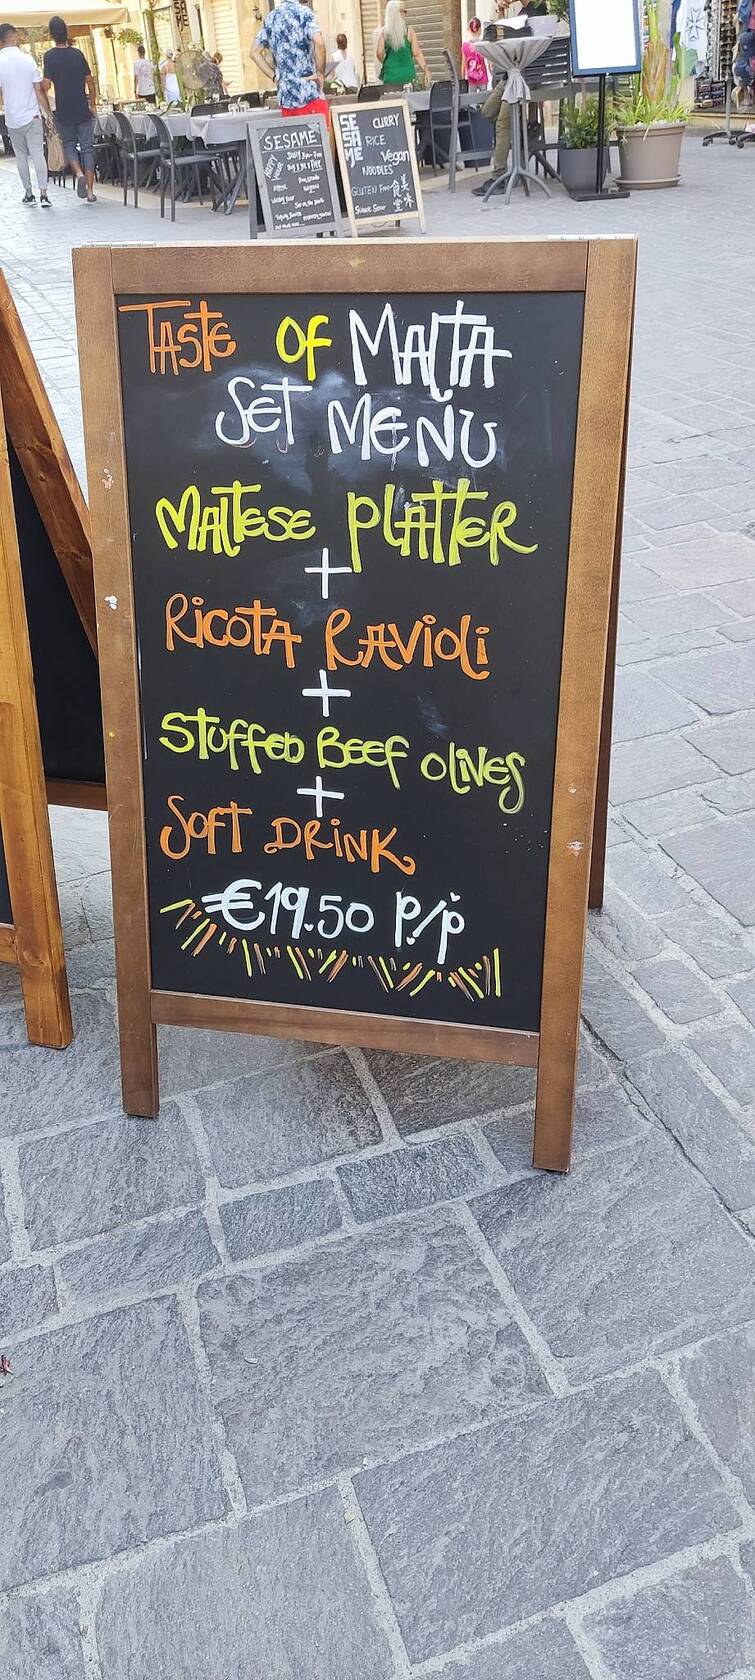 SESAME
SE
SA
ME
CURRY
RICE
Vegan
NOODLES
TASTE OF MALTA
SET MENU
MALTESE PLATTER
+
RICOTA RAVIOLI
+
STUFFED BEEF OLIVES
+
SOFT DRINK
€19.50 P/P